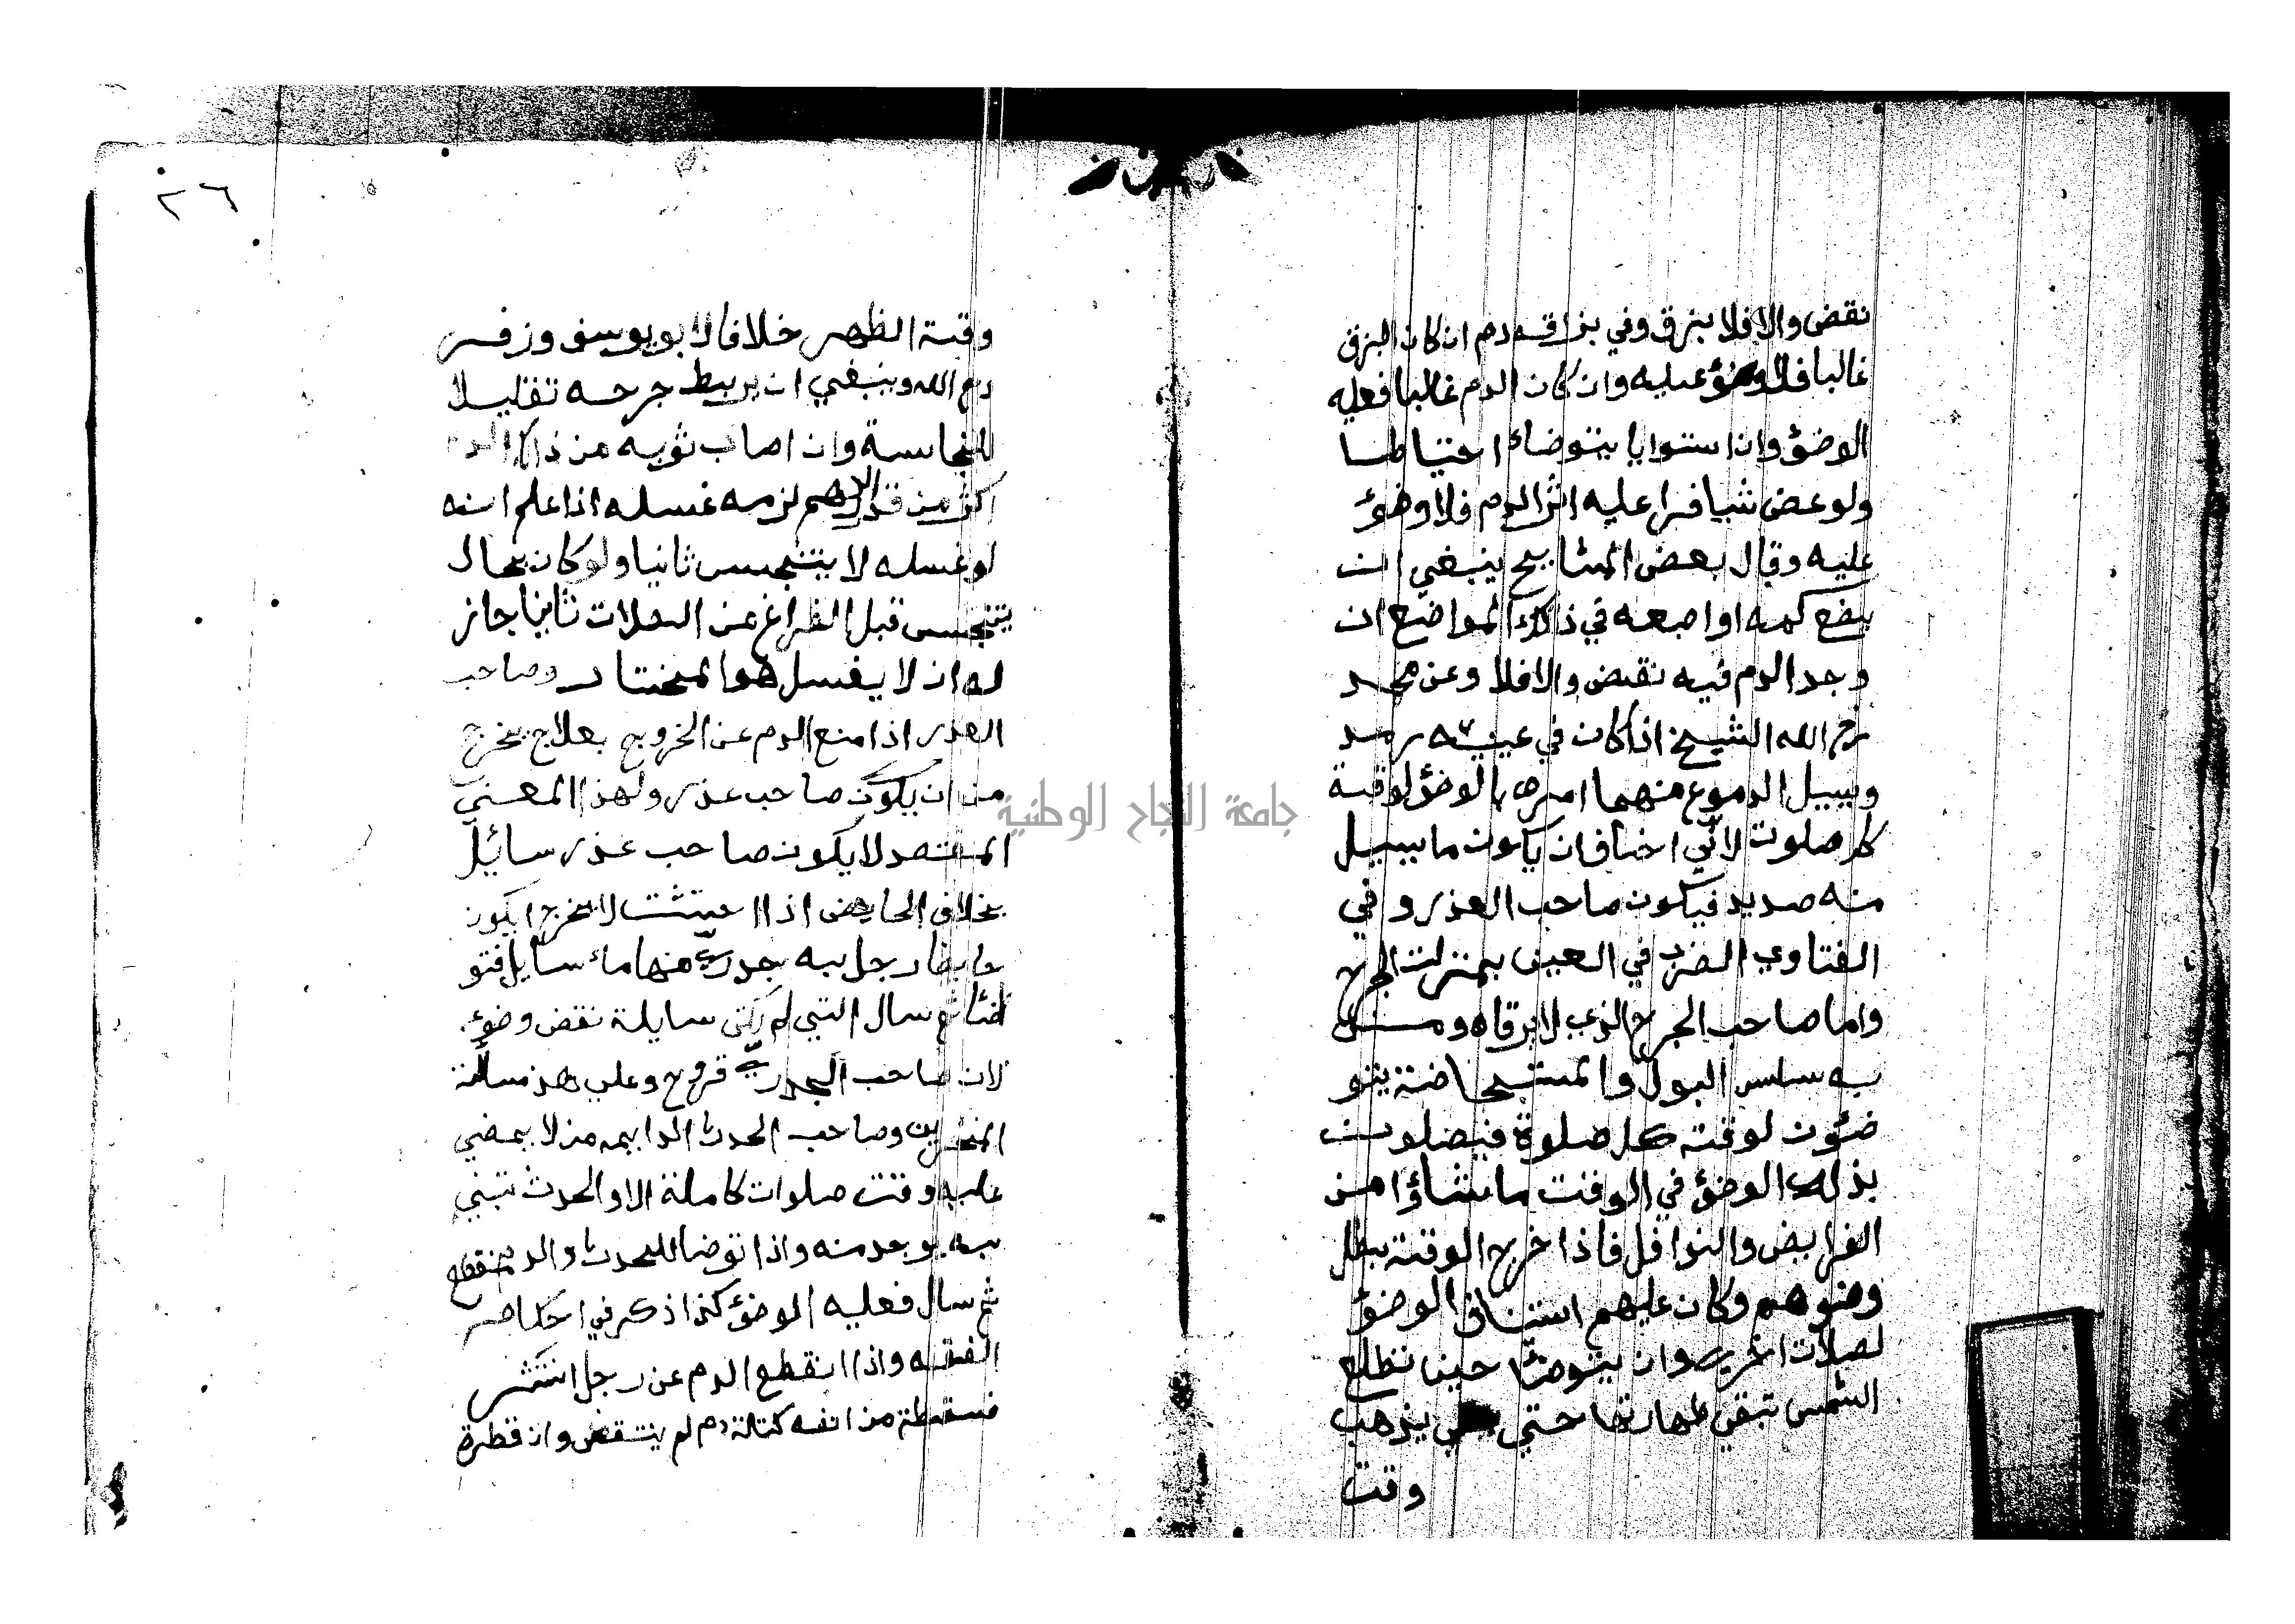 نقض والا فلا بنرق وفي بزاقه دم ان كان البزق
غالبا فلا وضؤ عليه وان كان الدم غالبا فعليه
الوضؤ وان استوايا يتوضاء احتياطا
ولو عض شيا فراء عليه اثر الدم فلا وضؤ
عليه وقال بعض المشايح ينبغي ان
يضع كمه او اصبعه في ذلك المواضع ان
وجد الدم فيه نقض والا فلا وعن محمد
رحم الله الشيخ اذا كان في عينيه رمد
ويسيل الدموع منهما امره بالوضؤ لوقت
كل صلوت لاني اخاف ان يكون ما يسيل
منه صديد فيكون صاحب العذر وفي
الفتاوي الغرب في العين بمنزلت الجرح
واما صاحب الجرح الذي لا يرقاه ومن
به سلس البول والمستحاضة يتو
ضئون لوقت كل صلوة فيصلون
بذلك الوضؤ في الوقت ما شاؤا من
الفرايض والنوافل فاذا خرج الوقت بطل
وضوهم وكان عليهم استناف الوضؤ
لصلات اخري وان يتوضا حين تطلع
الشمس تبقي طهارتها حتي يذهب
وقت
٢٦
وقت الظهر خلافا لابو يوسف وزفر
رحم الله وينبغي ان يربط جرحه تقليلا
للنجاسة وان اصاب ثوبه من ذلك الدم
اكثر من قدر الدرهم لزمه غسله اذا علم انه
لو غسله لا يتنجس ثانيا ولو كان بحال
يتنجس قبل الفراغ عن الصلات ثانيا جاز
له ان لا يغسل هو المختار وصاحب
العذر اذا منع الدم عن الخروج بعلاج يخرج
من ان يكون صاحب عذر ولهذا المعني
المفتصد لا يكون صاحب عذر سائيل
بخلاف الحايض اذا احتشت لا يخرج ايكون
حايضا رجل به جدري منها ماء سايل فتو
ضئا ثم سال التي لم تكن سايلة نقض وضوء
لان صاحب الجدري قروح وعلي هذ مسألة
المنخرين وصاحب الحدث الدايمه من لا يمضي
عليه وقت صلوات كاملة الا والحدث تبني
به يوجد منه واذا توضا للحدث والدم منقطع
ثم سال فعليه الوضؤ كذا ذكر في احكام
الفقه واذا انقطع الدم عن رجل انتثر
فسقطت من انفه كتالة دم لم ينتقض وان قطرة
جامعة النجاح الوطنية